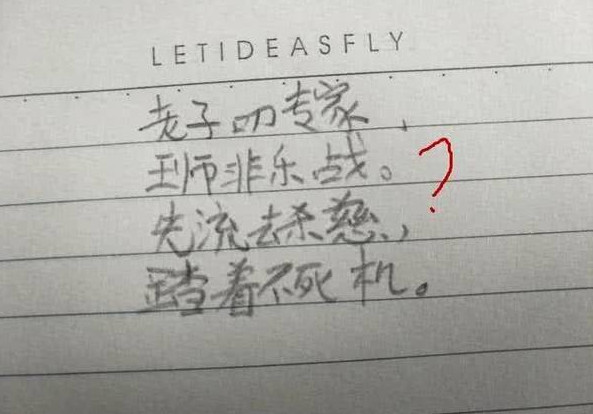 LETIDEASFLY
老子叨专家,
王师非乐战。
先流去杀慈,
踏着不死机。
?